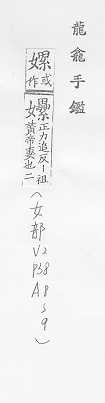 龍龕手鑑
嫘或作
正力追反丨祖
黃帝妻也二
（女部 V2 P38 A8 S9）